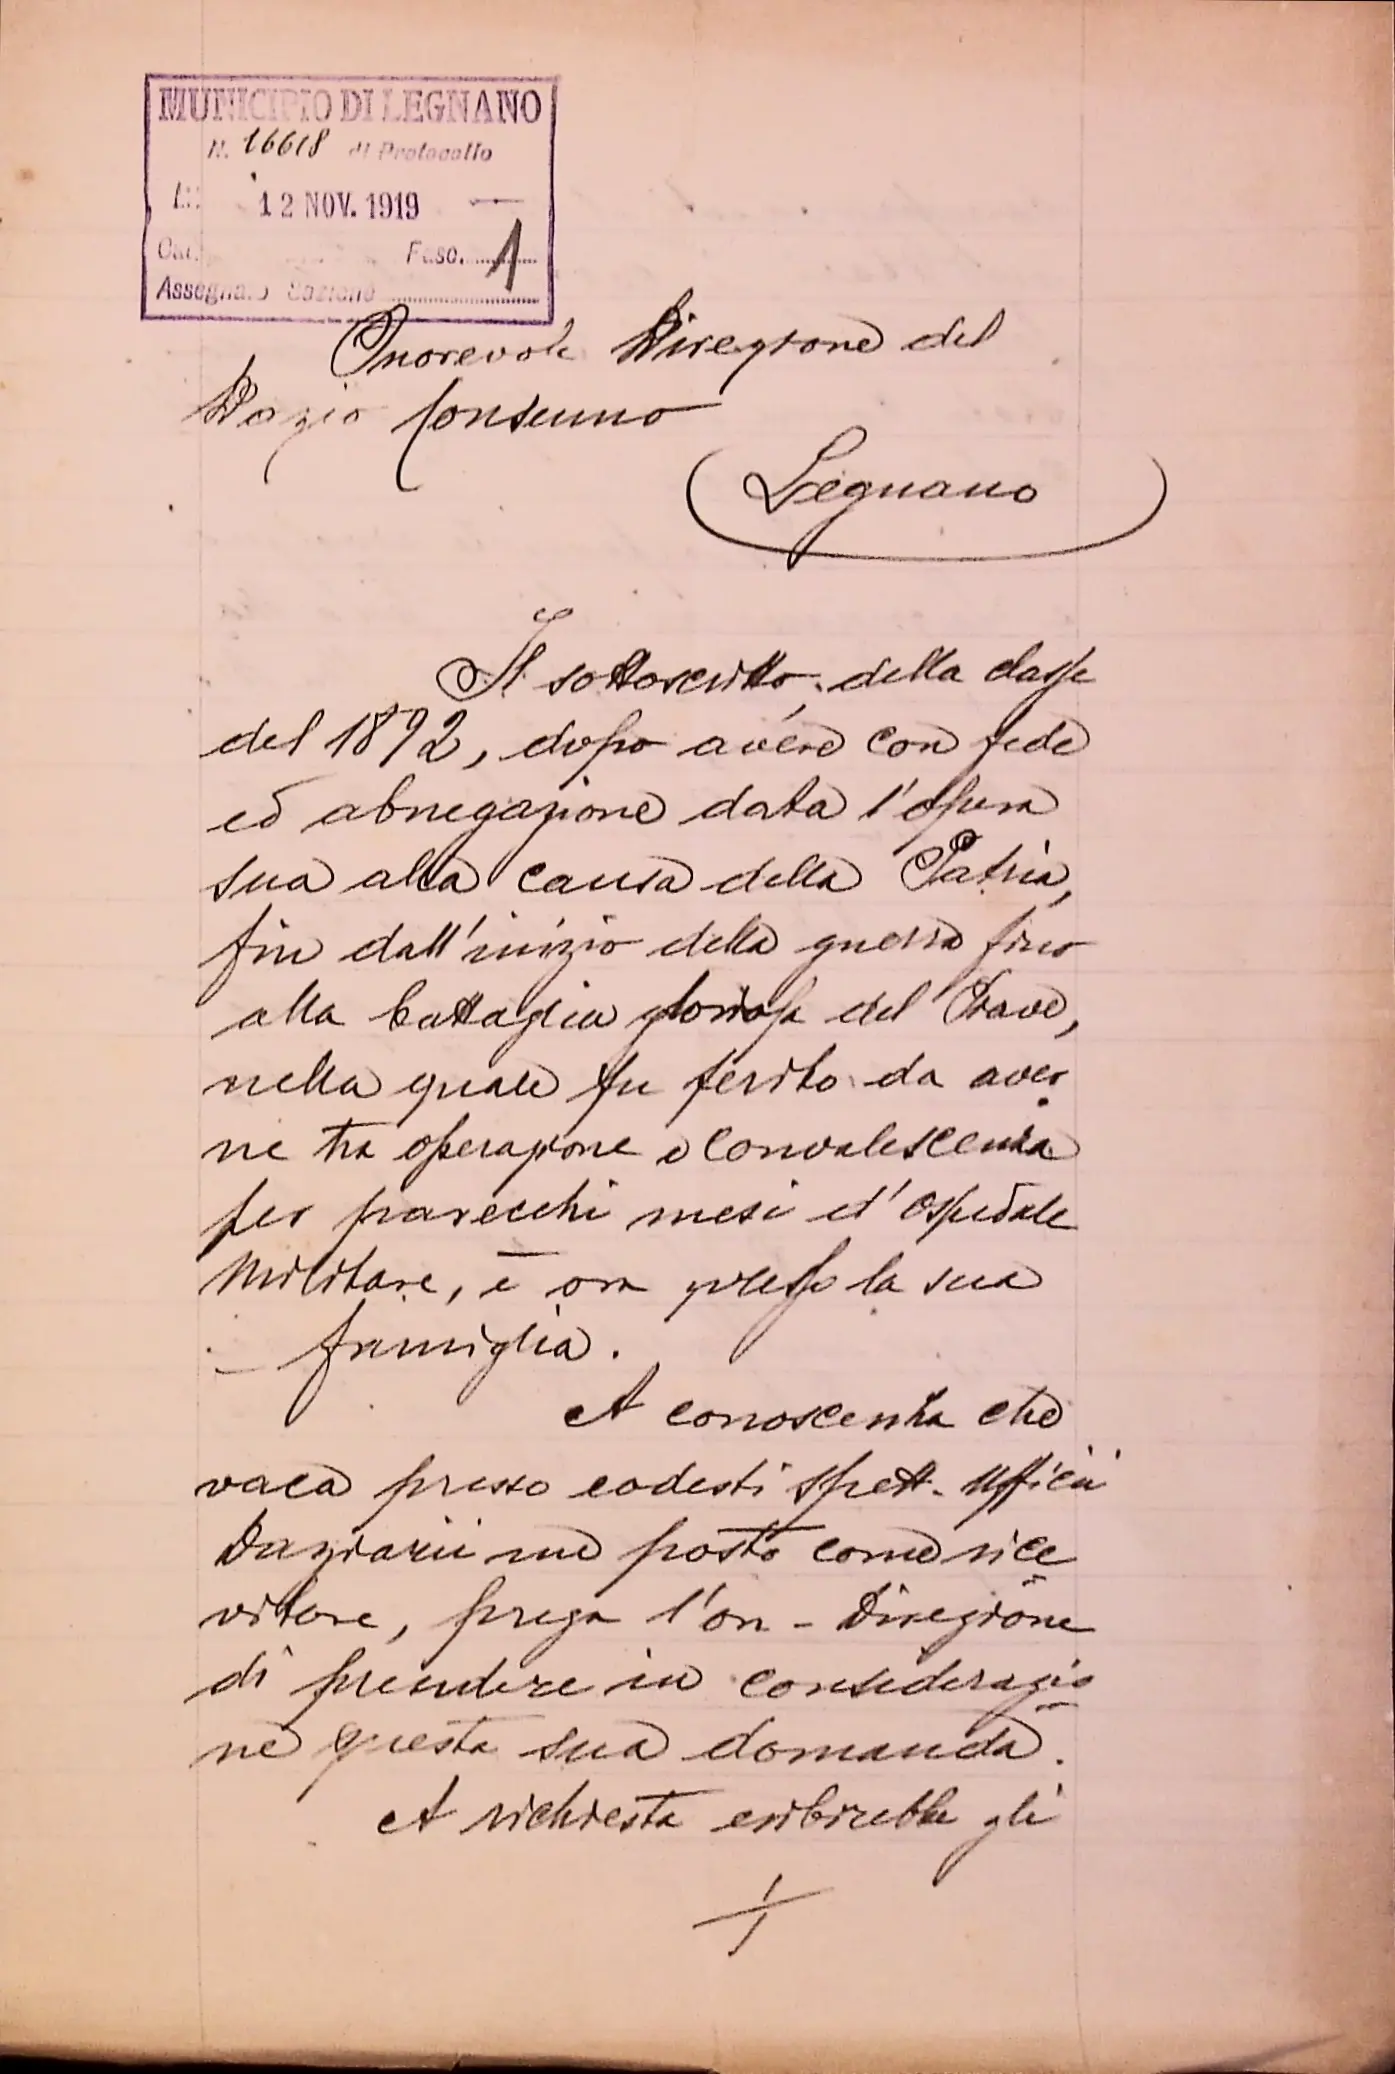 MUNICIPIO DI LEGNANO
N. 16618 di Protocollo
Li 12 NOV. 1919
Cat. Fasc. 1
Assegnato Sezione
Onorevole Direzione del
Dazio Consumo
Legnano
Il sottoscritto, della classe
del 1892, dopo avere con fede
ed abnegazione data l'opera
sua alla causa della Patria,
fin dall'inizio della guerra fino
alla battaglia gloriosa del Piave,
nella quale fu ferito da aver
ne tra operazione e convalescenza
per parecchi mesi d'ospedale
Militare, è ora presso la sua
famiglia.
A conoscenza che
vaca presso codesti spett. Uffici
Daziarii un posto come rice
vitore, prega l'on - Direzione
di prendere in considerazio
ne questa sua domanda.
A richiesta esibirebbe gli